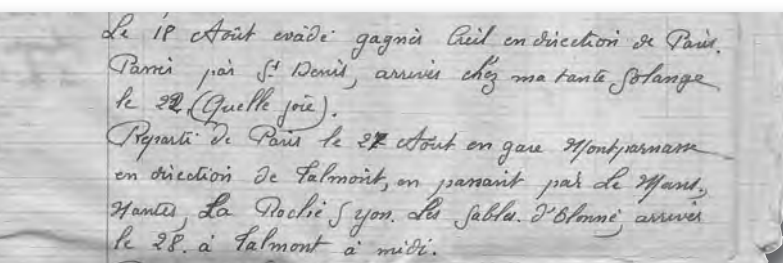 Le 18 Août evadé gagnér Creil en direction de Paris.
Passer par St Denis, arrivés chez ma tante Solange
le 22 (Quelle joie).
Reparti de Paris le 27 Août en gare Montparnasse
en direction de Talmont, en passant par Le Mans,
Nantes, La Roche S yon. Les Sables. d'Olonne, arrivés
le 28. à Talmont à midi.